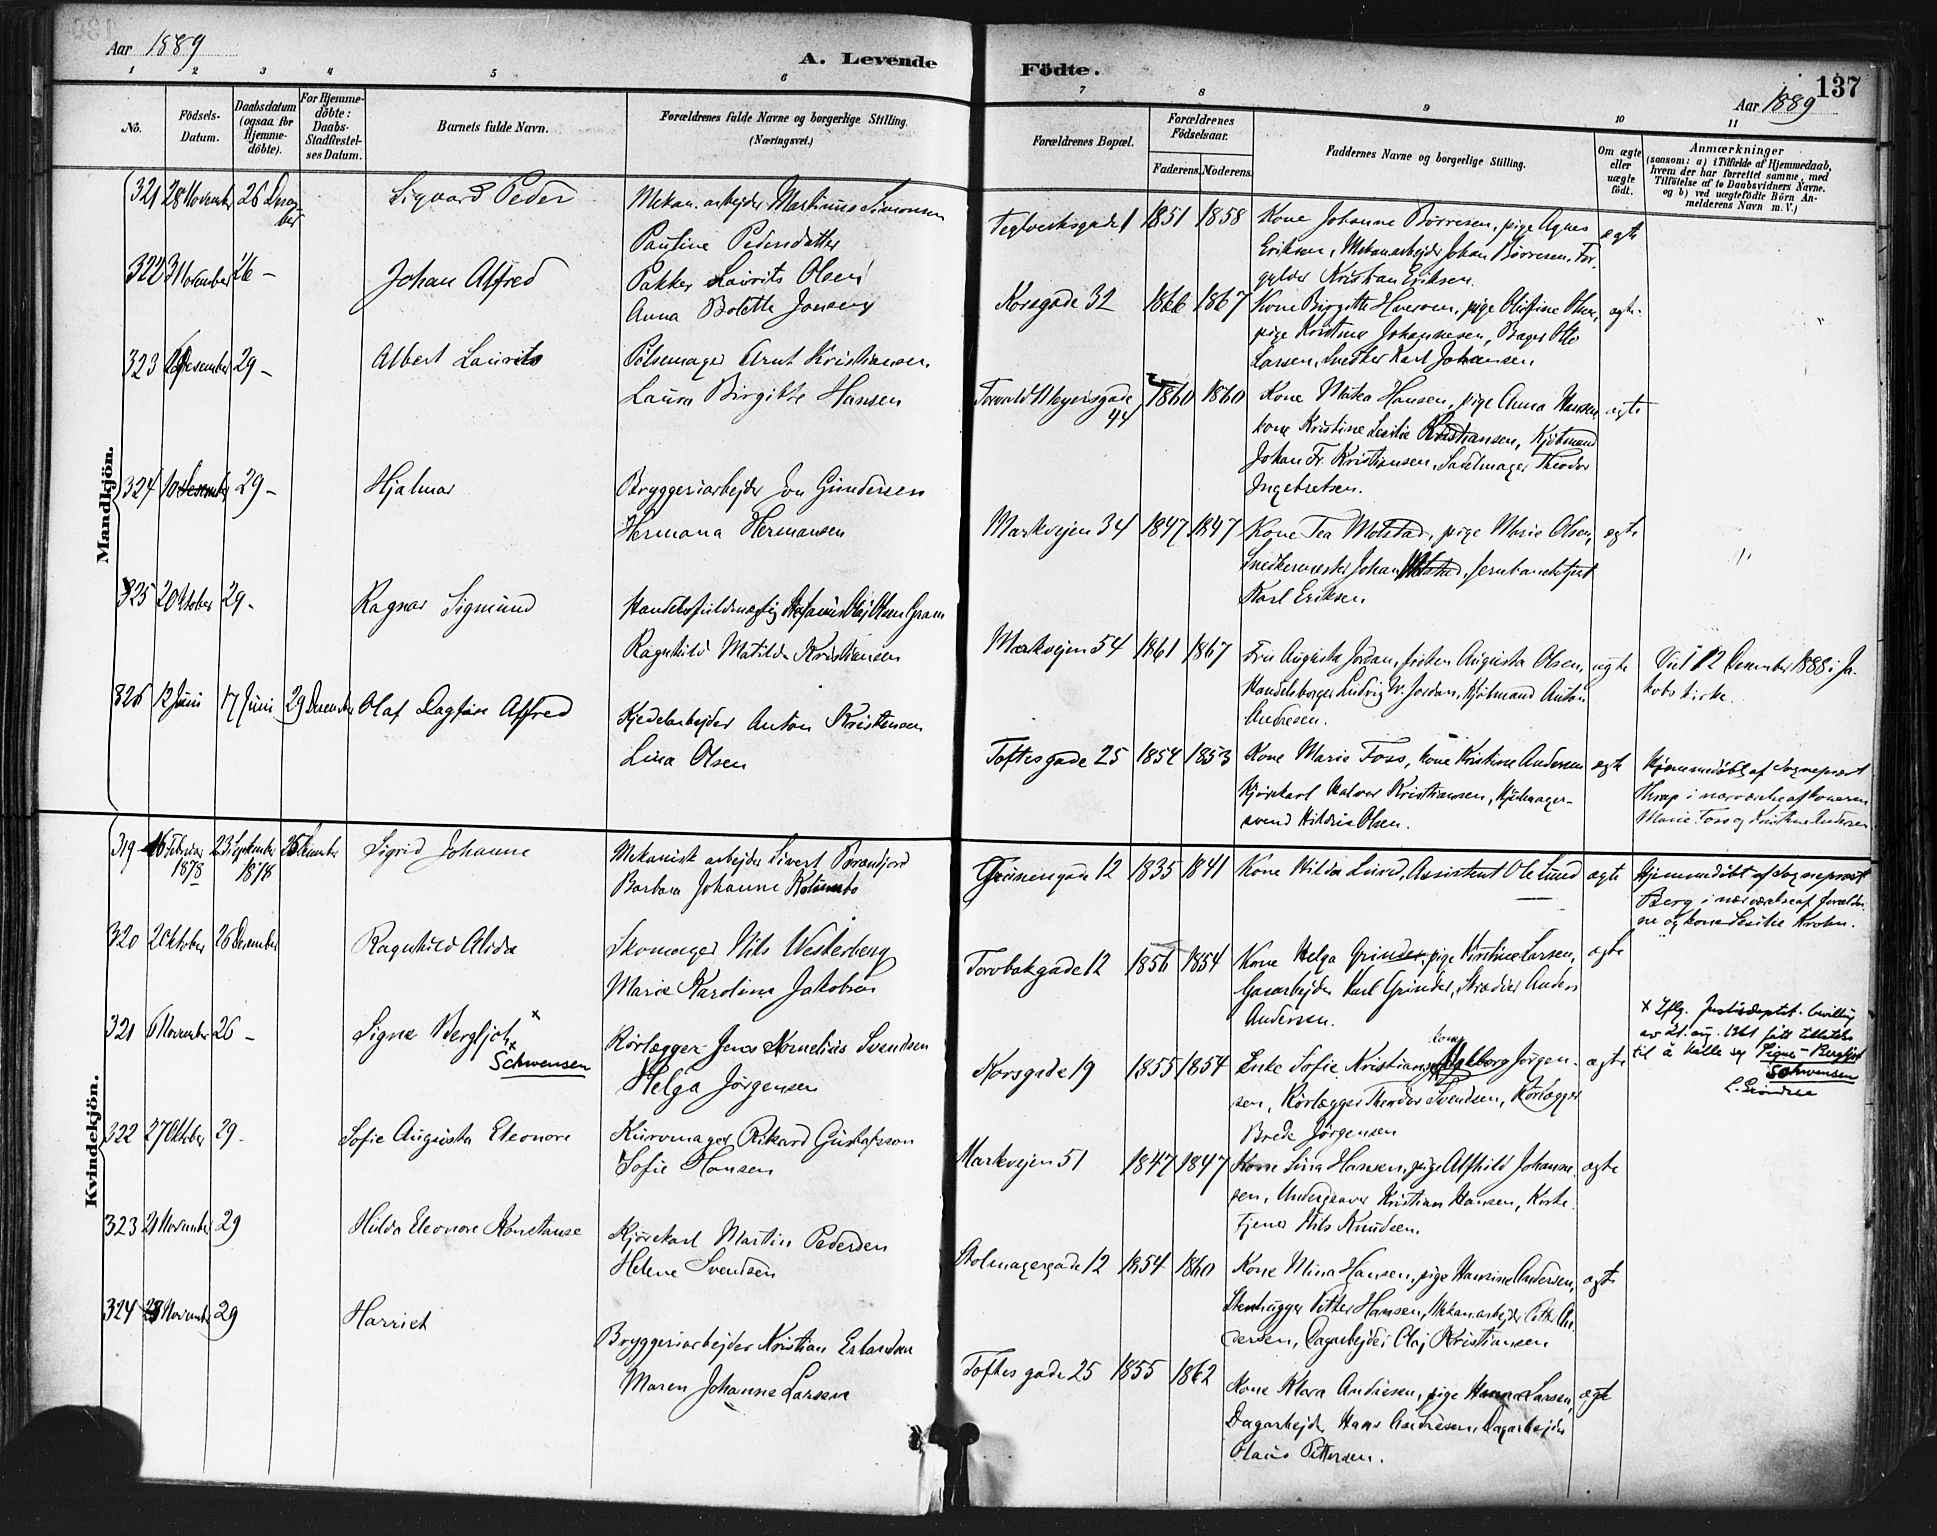 Aar 1889
A. Levende
Födte.
137
Aar 1889
1 2 3 4 5 6 7 8 9 10 11
No.
Födsels-
Datum.
Daabsdatum
(ogsaa for
Hjemme-
döbte).
For Hjemme-
döbte:
Daabs-
Stadfæstel-
ses Datum.
Barnets fulde Navn.
Forældrenes fulde Navne og borgerlige Stilling.
(Næringsvei.)
Forældrenes Bopæl.
Forældrenes
Födselsaar.
Faderens. Moderens.
Faddernes Navne og borgerlige Stilling.
Om ægte
eller
uægte
födt.
Anmærkninger
(saasom: a) i Tilfælde af Hjemmedaab,
hvem der har forrettet samme, med
Tilföielse af to Daabsvidners Navne,
og b) ved uægtefödte Börn An-
melderens Navn m. V.)
Mandkjön.
321 28 November 26 Decem-
ber
Sigvard Peder
Mekan. arbejder Martinius Simonsen
Pauline Pedersdatter
Teglverksgade 1 1851 1858
Kone Johanne Børresen, pige Agnes
Eriksen, Mekanarbejder Johan Børresen, For-
gylder Kristian Eriksen.
ægte
322 3 November 26 –
Johan Alfred
Pakker Lavrits Olsen
Anna Bolette Jensen
Korsgade 32 1866 1867
Kone Birgitte Halvorsen, pige Olufine Olsen,
pige Kristine Johannesen, Bager Otto
Larsen, Snedker Karl Johansen
ægte
323 December 29 –
Albert Laurits
Pølsemager Arnt Kristiansen
Laura Birgitte Hansen
Torvald Meyersgade
44
1860 1860
Kone Matea Hansen, pige Anna Hansen
kone Kristine Cesilie Kristiansen, Kjøbmand
Johan Fr. Kristiansen, Sadelmager Theodor
Ingebretsen.
ægte
324 10 December 29 –
Hjalmar
Bryggeriarbejder Jon Gundersen
Hermana Hermansen
Markvejen 34 1847 1847
Kone Tea Molstad, pige Marie Olsen,
Snedkermester Johan Molstad, Jernbanebetjent
Karl Eriksen
ægte
325 20 Oktober 29 –
Ragnar Sigmund
Handelsfuldmægtig Stefanus Olaf Olsen Gram
Ragnhild Matilde Kristiansen
Markvejen 54 1861 1867
Fru Augusta Jordan, frøken Augusta Olsen,
Handelsborger Ludvig W. Jordan, Kjøbmand Anton
Andresen.
ægte
Viet 12 December 1888 i Ja-
kobs kirke.
326 12 Juni 17 Juni 29 December
Olaf Dagfin Alfred
Kjedelarbejder Anton Kristensen
Lina Olsen
Toftesgade 25 1854 1853
Kone Marie Foss, kone Kristine Andersen
Kjørekarl Halvor Kristiansen, Hjulmager-
svend Hildris Olsen.
ægte
Hjemmedøbt af Sognepræst
Thrap i nærværelse af konerne
Marie Foss og Kristine Andersen
Kvindekjön.
319 16 Februar
1878
23 September
1878
26 December
Sigrid Johanne
Mekanisk arbejder Sivert
Barbara Johanne Kolumbo
Grünersgade 12 1835 1841
Kone Hilda Lund, Assistent Ole Lund
ægte
Hjemmedøbt af Sognepræst
Berg i nærværelse af forældre-
ne og kone Cesilie Krohn.
320 2 Oktober 26 December
Ragnhild Alvida
Skomager Nils Westerberg
Marie Karoline Jakobsen
Torvbakgade 12 1856 1854
Kone Helga Grinder, pige Kirstine Larsen,
Gasarbejder Karl Grinder, Skrædder Anders
Andersen.
ægte
321 6 November 26 –
Signe Bergljot x
x
Schwensen
Rørlægger Jens Kornelius Svendsen
Helga Jørgensen
Korsgade 19 1855 1854
Enke Sofie Kristiansen, kone Valborg Jørgen-
sen, Rørlægger Theodor Svendsen, Rørlægger
Brede Jørgensen
ægte
x Iflg. Justisdeptet. bevilling
av 21. aug. 1961 fått tillatelse
til å kalle seg Signe-Bergljot
Schwensen
322 27 Oktober 29 –
Sofie Augusta Eleonore
Kurvmager Rikard Gustafsson
Sofie Hansen
Markvejen 51 1847 1847
Kone Lina Hansen, pige Alfhild Johanne-
sen, Undergraver Kristian Hansen, Kirke-
tjener Nils Knudsen.
ægte
323 21 November 29
Hilda Eleonore Konstanse
Kjørekarl Martin Pedersen
Helene Svendsen
Stolmagergade 12 1854 1860
Kone Mina Hansen, pige Hansine Andersen,
Stenhugger Petter Hansen, Mekan. arbejder Petter An-
dersen, Dagarbejder Olaf Kristiansen
ægte
324 23 November 29
Harriet
Bryggeriarbejder Kristian Erlandsen
Maren Johanne Larsen
Toftesgade 25 1855 1862
Kone Klara Andresen, pige Hanna Larsen,
Dagarbejder Hans Andresen, Dagarbejder
Olaus Pettersen.
ægte